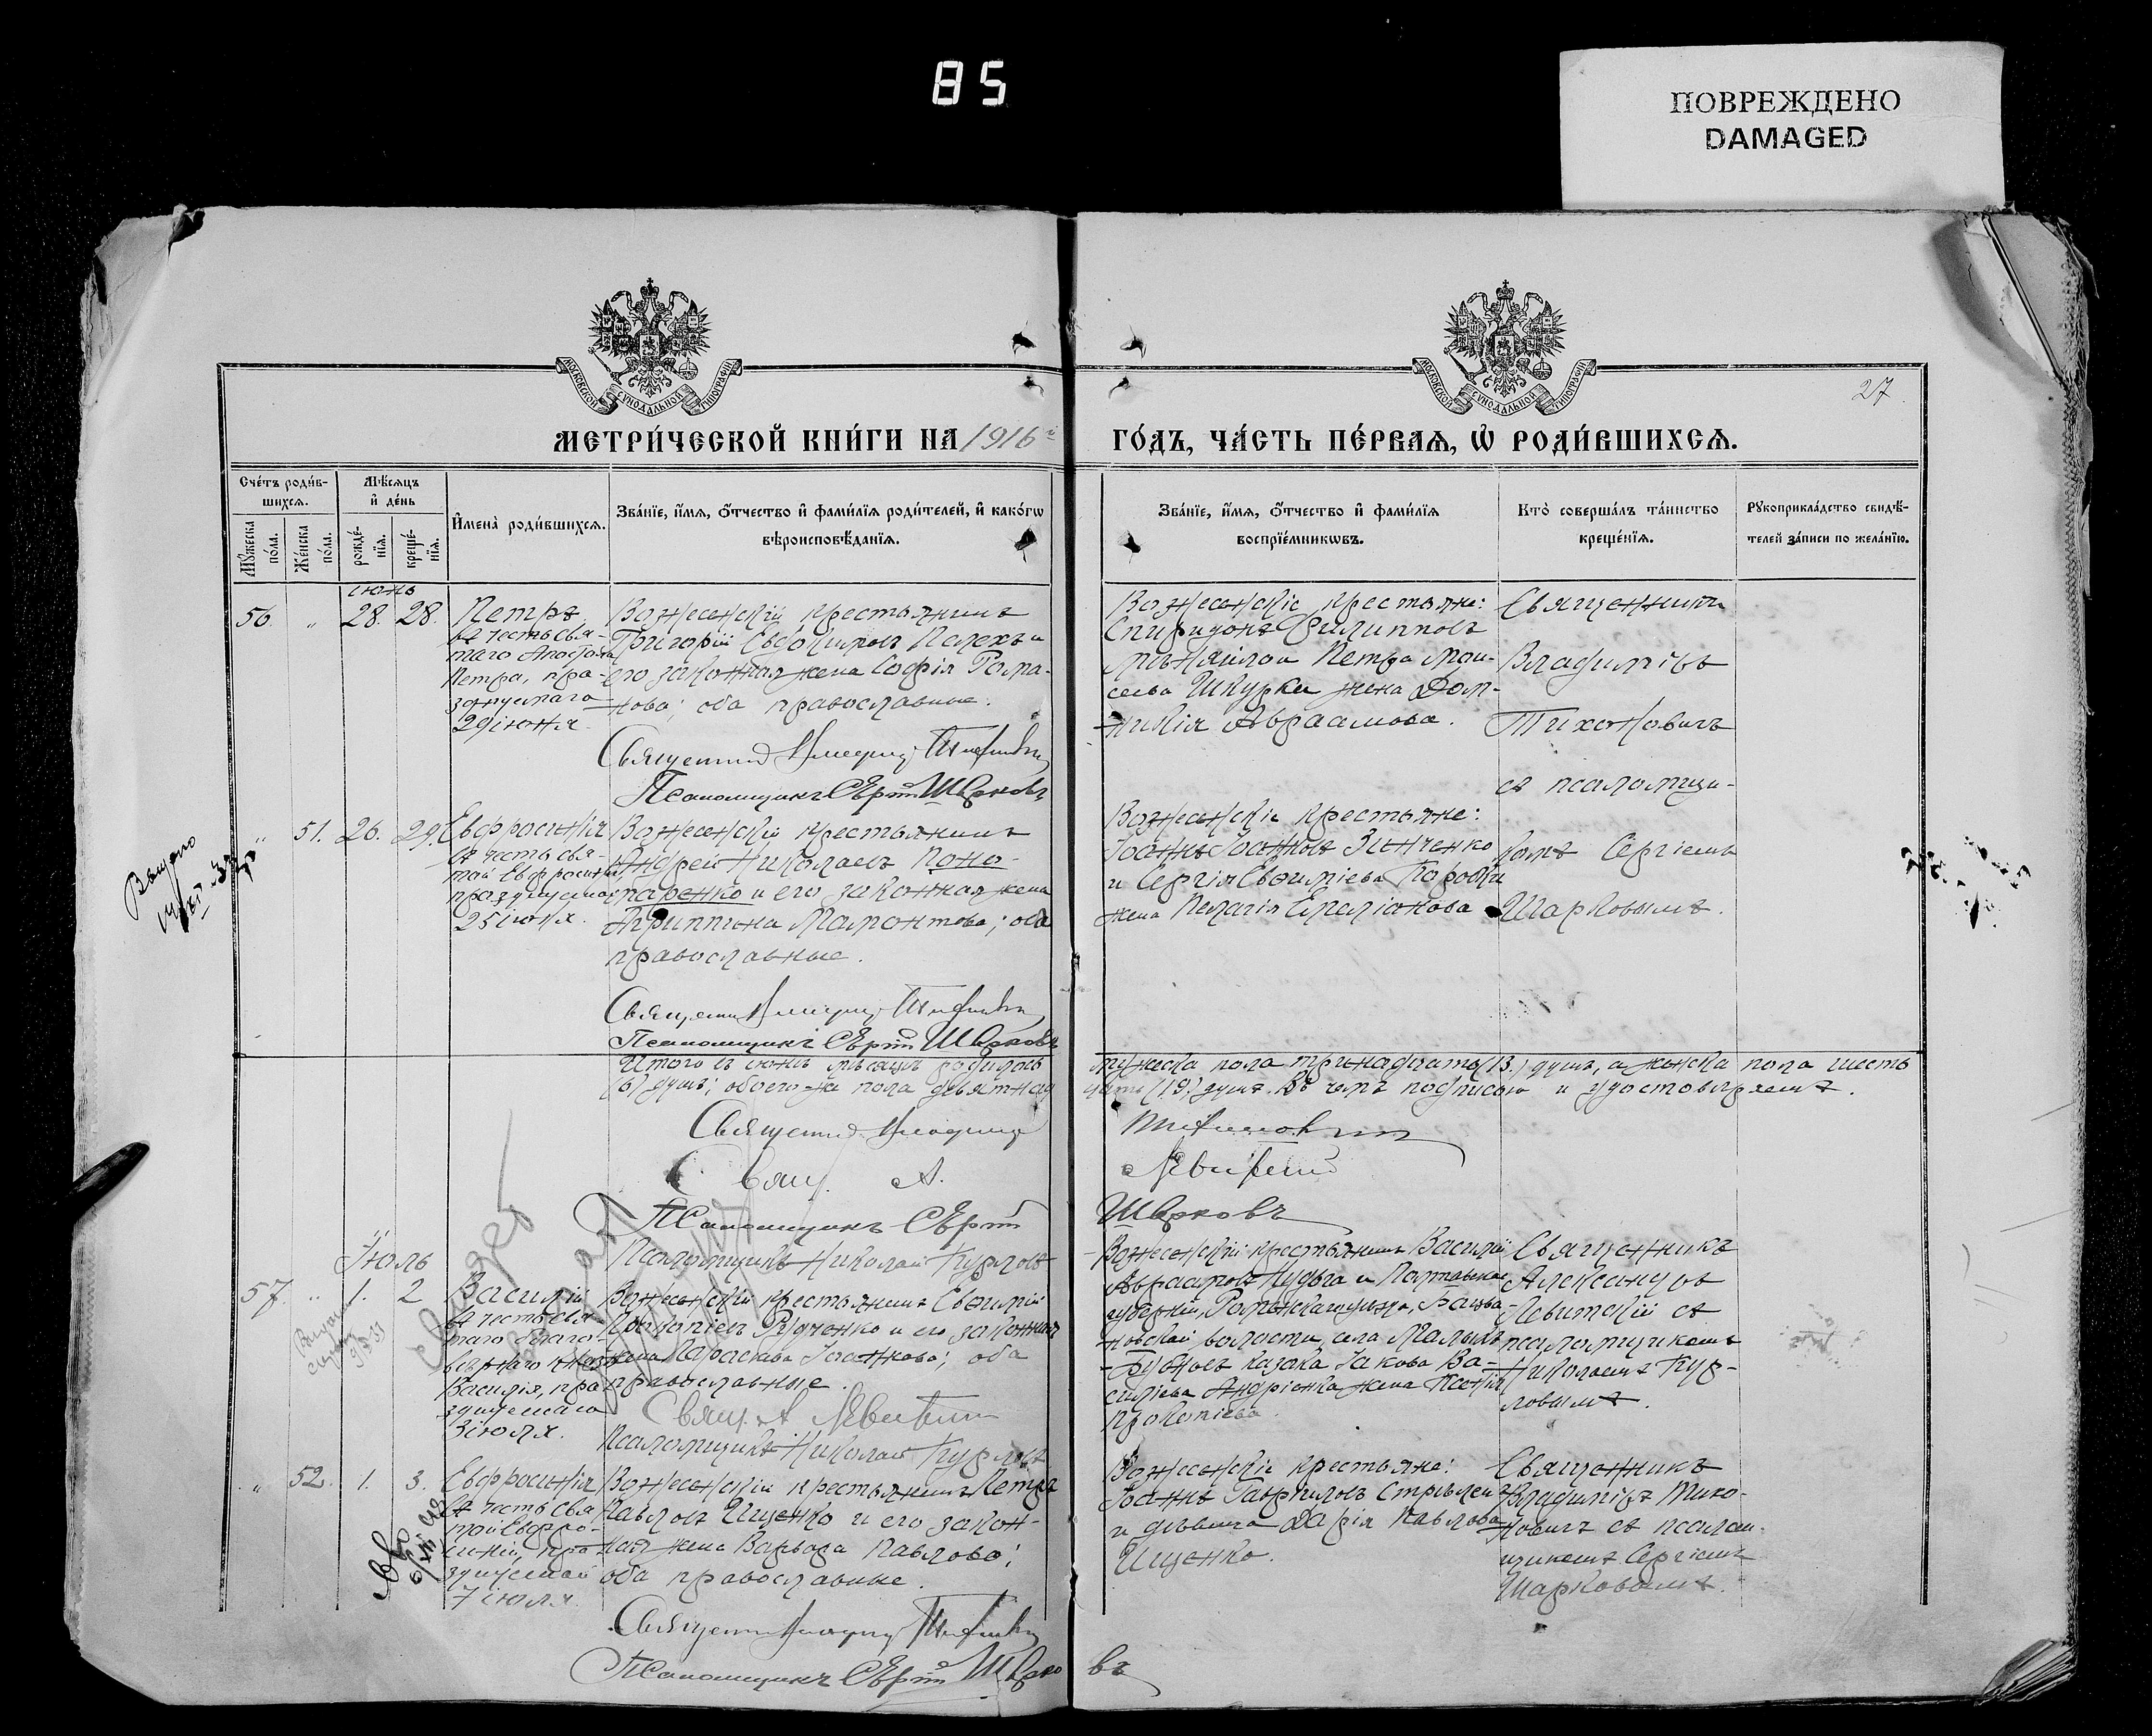 85
ПОВРЕЖДЕНО
DAMAGED
МОСКОВСКОЙ СѴНОДАЛЬНОЙ ТИПОГРАФІИ
МОСКОВСКОЙ СѴНОДАЛЬНОЙ ТИПОГРАФІИ
27.
МЕТРИ́ЧЕСКОЙ КНИ́ГИ НА 1916й
ГО́ДЪ, ЧА́СТЬ ПЕ́РВАѦ, Ѡ҆ РОДИ́ВШИХСѦ.
Сче́тъ роди́в-
шихсѧ.
Мѣ́сѧцъ
и҆ де́нь
Мꙋ́жеска
по́ла.
Же́нска
по́ла.
рожде́-
нїѧ.
креще́-
нїѧ.
И҆мена̀ роди́вшихсѧ.
Зва́нїе, и҆́мѧ, ѻ҆́тчество и҆ фами́лїѧ роди́телей, и҆ како́гѡ
вѣроисповѣ́данїѧ.
Зва́нїе, и҆́мѧ, ѻ҆́тчество и҆ фами́лїѧ
воспрїе́мникѡвъ.
Кто̀ соверша́лъ та́инство
креще́нїѧ.
Рꙋкоприкла́дство свидѣ́-
телей за́писи по жела́нїю.
Іюнь
56. " 28. 28.
Петръ
въ честь свя-
таго Апостола
Петра, пра-
зднуемаго
29 іюня.
Вознесенскій крестьянинъ
Григорій Евѳимовъ Палехъ и
его законная жена Софія Рома-
нова; оба православные.
Священникъ Владиміръ Тихонович
Псаломщикъ Сергій Шарковъ
Вознесенскіе крестьяне:
Спиридонъ Филипповъ
и Петра Мои-
сеева Шкурки жена Дом-
никія Авраамова.
Священникъ
Владиміръ
Тихоновичъ
съ псаломщи-
комъ Сергіемъ
Шарковымъ.
" 51. 26. 29.
Евфросинія
въ честь свя-
той Евфросиніи,
празднуемой
25 іюля.
Вознесенскій крестьянинъ
Андрей Николаевъ Поно-
маренко и его законная жена
Агриппина Мамонтова; оба
православные.
Священникъ Владиміръ Тихонович
Псаломщикъ Сергій Шарковъ
Вознесенскіе крестьяне:
Іоаннъ Іоанновъ Зинченко
и Сергія Евѳиміева Коробки
жена Пелагія Емеліанова
Итого въ іюнѣ мѣсяцѣ родилось мужеска пола тринадцать (13.) душъ, а женска пола шесть
(6) душъ; обоего же пола девятнадцать (19) душъ. Въ чемъ подписомъ и удостовѣряемъ.
Священникъ Владиміръ Тихонович
Свящ. А. Левитскій
Псаломщикъ Сергій Шарковъ
Псаломщикъ Николай Курловъ
Іюль
57. " 1. 2
Василій
въ честь свя-
таго благо-
вѣрнаго князя
Василія, пра-
зднуемаго
3 іюля.
Вознесенскій крестьянинъ Евѳимій
Прокопіевъ Рудченко и его законная
жена Параскева Іоаннова; оба
православные.
Свящ. А. Левитскій
Псаломщикъ Николай Курловъ
Вознесенскій крестьянинъ Василій
Авраамовъ Кудъга и Полтавской
губерніи, Роменскаго уѣзда,
волости, села Малыхъ
Бубновъ казака Іакова Ва-
силіева Андріенка жена Ксенія
Прокопіева.
Священникъ
Александръ
Левитскій съ
псаломщикомъ
Николаемъ Кур-
ловымъ.
" 52. 1. 3.
Евфросинія
въ честь свя-
той Евфро-
синіи, пра-
зднуемой
7 іюля.
Вознесенскій крестьянинъ Петръ
Павловъ Ищенко и его закон-
ная жена Варвара Павлова;
оба православные.
Священникъ Владиміръ Тихонович
Псаломщикъ Сергій Шарковъ
Вознесенскіе крестьяне:
Іоаннъ Гавриловъ Стрѣлецъ
и дѣвица Дарія Павлова
Ищенко.
Священникъ
Владиміръ Тихо-
новичъ съ псалом-
щикомъ Сергіемъ
Шарковымъ.